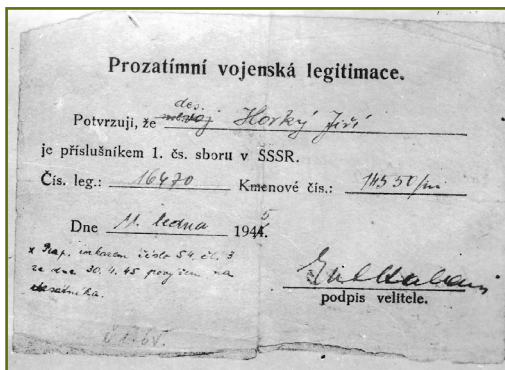 Prozatímní vojenská legitimace.
des.
Potvrzuji, že Horký Jiří
je příslušníkem 1. čs. sboru v SSSR.
Čís. leg.: 16470 Kmenové čís.: 14550/m
Dne 11. ledna 1945.
x Rap. rozkazem číslo 54. čl. 3
ze dne 30.4.45 povýšen na
desátníka.
podpis velitele.